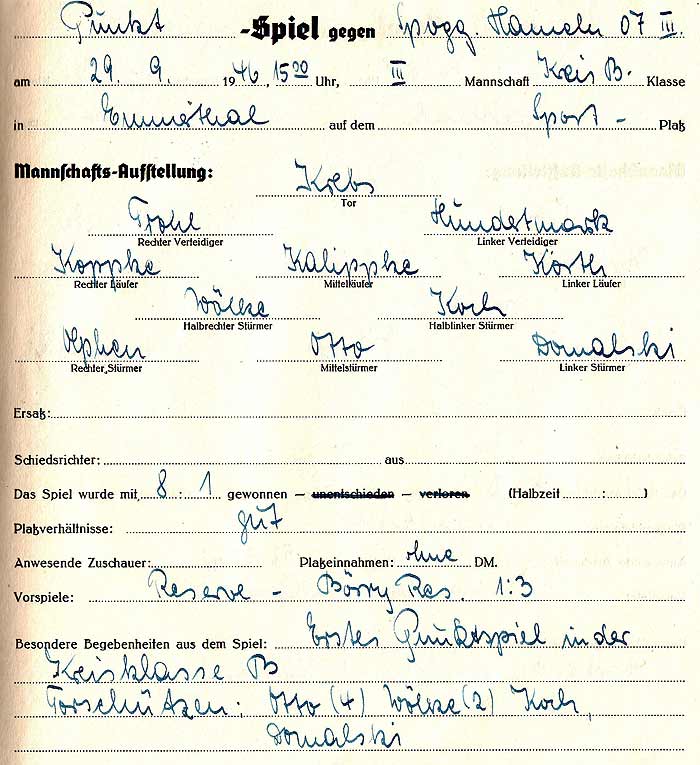 Punkt -Spiel gegen Spvgg. Hameln 07 III.
am 29. 9. 1946, 15⁰⁰ Uhr, III Mannschaft Kreis B. Klasse
in Emmerthal auf dem Sport - Platz
Mannschafts-Aufstellung:
Krebs
Tor
Trohl Hundertmark
Rechter Verteidiger Linker Verteidiger
Koppke Kalippke Körth
Rechter Läufer Mittelläufer Linker Läufer
Wölke Koch
Halbrechter Stürmer Halblinker Stürmer
Olphen Otto Domalski
Rechter Stürmer Mittelstürmer Linker Stürmer
Ersatz:
Schiedsrichter: aus
Das Spiel wurde mit 8 : 1 gewonnen – unentschieden – verloren (Halbzeit : )
Platzverhältnisse: gut
Anwesende Zuschauer: Platzeinnahmen: ohne DM.
Vorspiele: Reserve - Börry Res. 1:3
Besondere Begebenheiten aus dem Spiel: Erstes Punktspiel in der
Kreisklasse B
Torschützen: Otto (4) Wölke (2) Koch,
Domalski